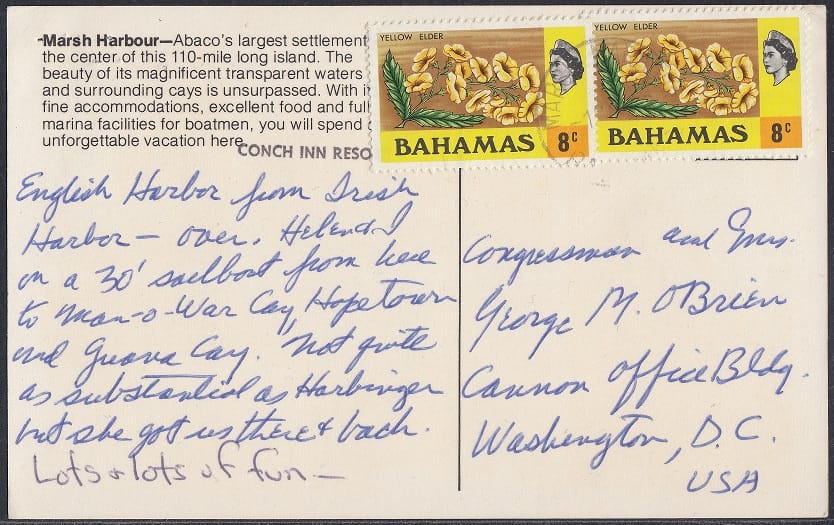 Marsh Harbour—Abaco's largest settlement
the center of this 110-mile long island. The
beauty of its magnificent transparent waters
and surrounding cays is unsurpassed. With
fine accommodations, excellent food and full
marina facilities for boatmen, you will spend
unforgettable vacation here
CONCH INN RESO
YELLOW ELDER
BAHAMAS 8c
YELLOW ELDER
BAHAMAS 8c
English Harbor from Irish
Harbor — over. Helen & I
on a 30' sailboat from here
to Man-o-War Cay, Hopetown
and Guana Cay. Not quite
as substantial as Harbinger
but she got us there & back.
Lots & lots of fun —
Congressman and Mrs.
George M. O'Brien
Cannon Office Bldg.
Washington, D.C.
USA